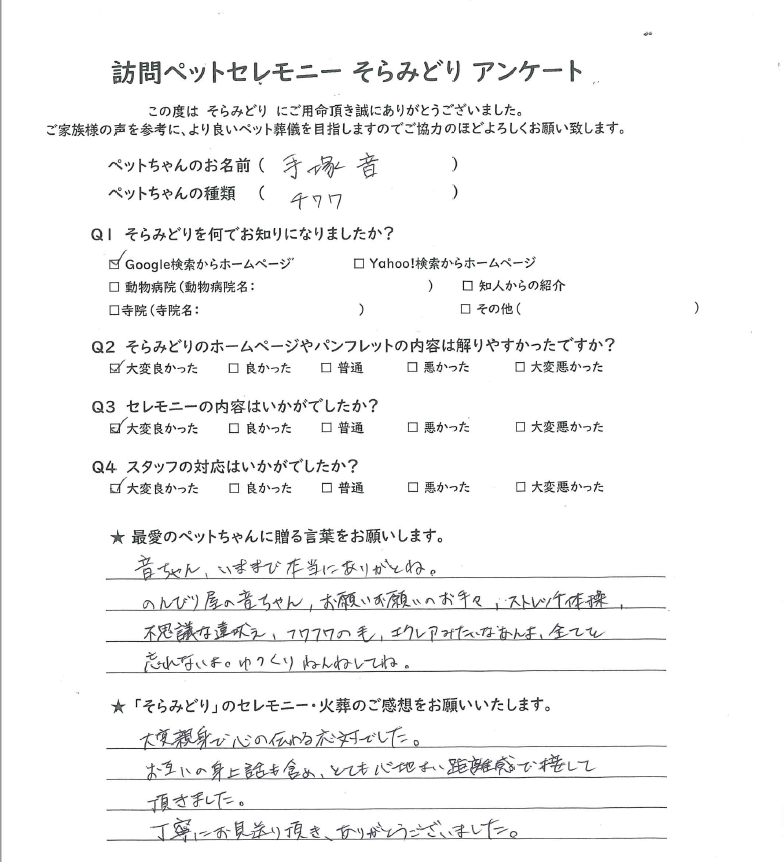 訪問ペットセレモニー そらみどり アンケート
この度は そらみどり にご用命頂き誠にありがとうございました。
ご家族様の声を参考に、より良いペット葬儀を目指しますのでご協力のほどよろしくお願い致します。
ペットちゃんのお名前 ( 手塚 音 )
ペットちゃんの種類 ( チワワ )
Q1 そらみどりを何でお知りになりましたか?
☑ Google検索からホームページ □ Yahoo!検索からホームページ
□ 動物病院(動物病院名: ) □ 知人からの紹介
□寺院(寺院名: ) □ その他( )
Q2 そらみどりのホームページやパンフレットの内容は解りやすかったですか?
☑ 大変良かった □ 良かった □ 普通 □ 悪かった □ 大変悪かった
Q3 セレモニーの内容はいかがでしたか?
☑ 大変良かった □ 良かった □ 普通 □ 悪かった □ 大変悪かった
Q4 スタッフの対応はいかがでしたか?
☑ 大変良かった □ 良かった □ 普通 □ 悪かった □ 大変悪かった
★ 最愛のペットちゃんに贈る言葉をお願いします。
音ちゃん、いままで本当にありがとね。
のんびり屋の音ちゃん、お願いお願いのお手々、ストレッチ体操、
不思議な遠吠え、フワフワの毛、エクレアみたいなあんよ、全てを
忘れないよ。ゆっくりねんねしてね。
★「そらみどり」のセレモニー・火葬のご感想をお願いいたします。
大変親身で心の伝わる応対でした。
お互いの身上話も含め、とても心地よい距離感で接して
頂きました。
丁寧にお見送り頂き、ありがとうございました。